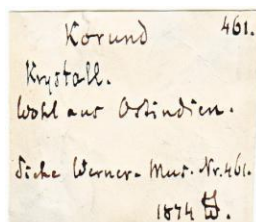 Korund 461.
Krystall.
Wohl aus Ostindien.
Siehe Werner-Mus. Nr. 461.
1874